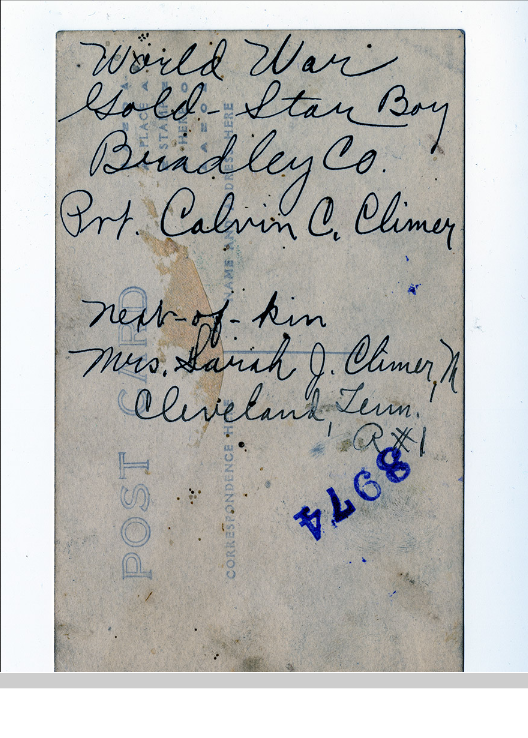 World War
Gold-Star Boy
Bradley Co.
Pvt. Calvin C. Climer
next-of-kin
Mrs. Sarah J. Climer, M
Cleveland, Tenn.
R#1
8974
POST CARD
CORRESPONDENCE HERE
NAME AND ADDRESS HERE
PLACE
STAMP
HERE